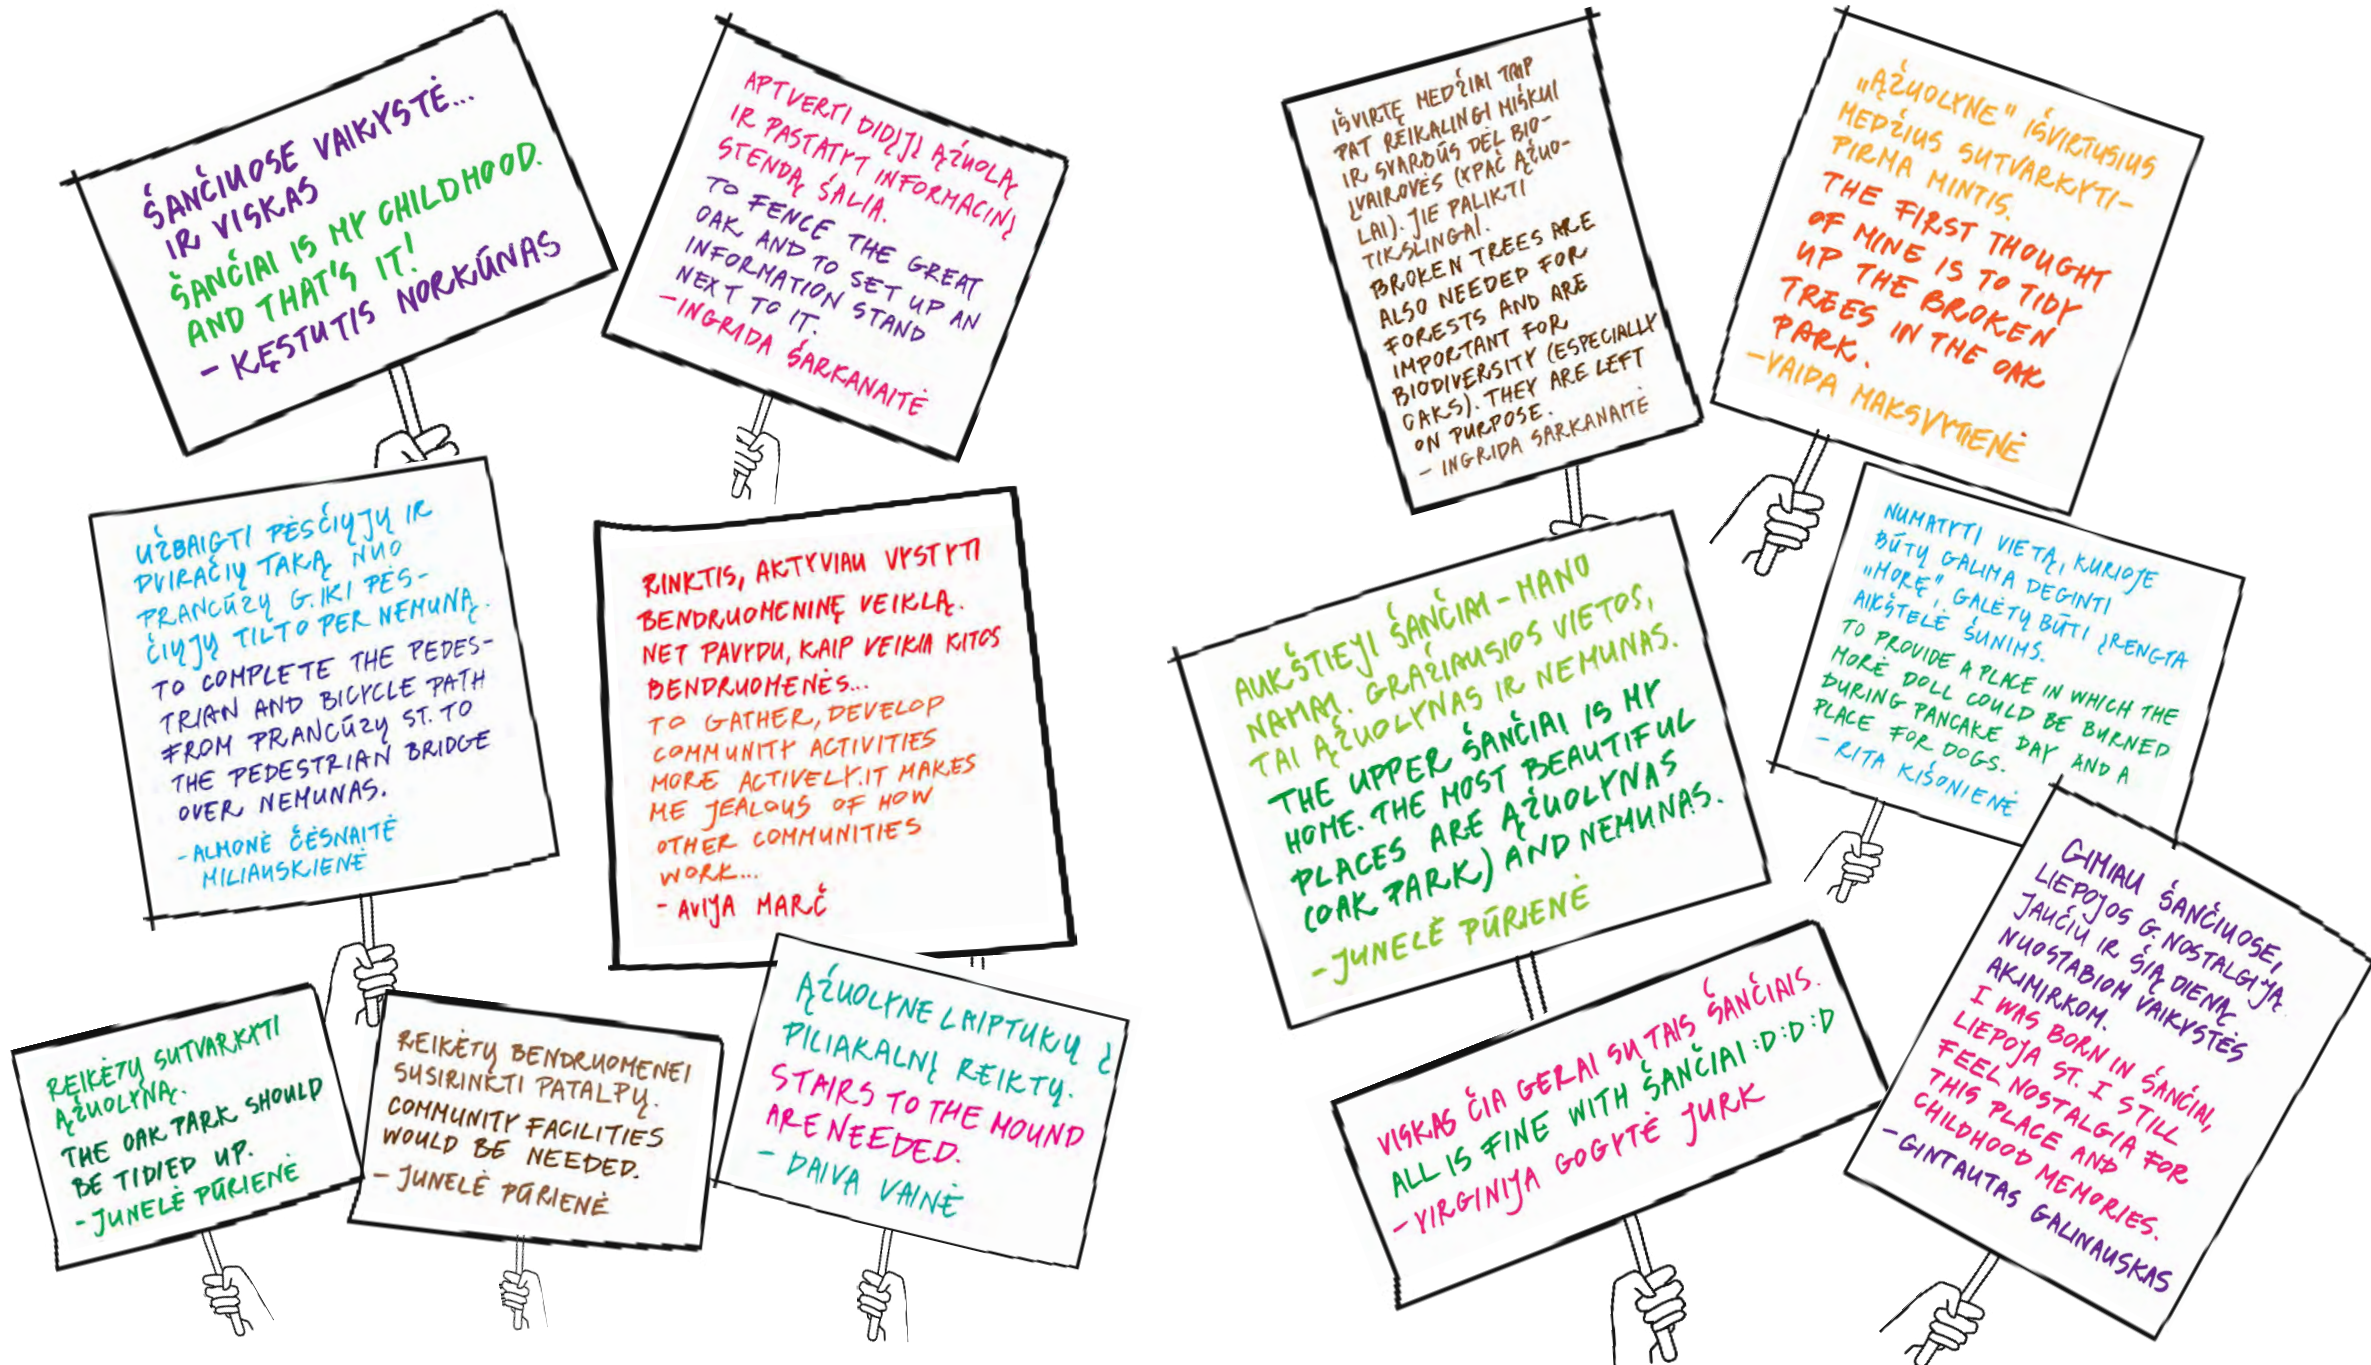 ŠANČIUOSE VAIKYSTĖ...
IR VISKAS
ŠANČIAI IS MY CHILDHOOD.
AND THAT'S IT!
- KĘSTUTIS NORKŪNAS
APTVERTI DIDĮJĮ ĄŽUOLĄ
IR PASTATYT INFORMACINĮ
STENDĄ ŠALIA.
TO FENCE THE GREAT
OAK AND TO SET UP AN
INFORMATION STAND
NEXT TO IT.
- INGRIDA ŠARKANAITĖ
UŽBAIGTI PĖSČIŲJŲ IR
DVIRAČIŲ TAKĄ NUO
PRANCŪZŲ G. IKI PĖS-
ČIŲJŲ TILTO PER NEMUNĄ.
TO COMPLETE THE PEDES-
TRIAN AND BICYCLE PATH
FROM PRANCŪZŲ ST. TO
THE PEDESTRIAN BRIDGE
OVER NEMUNAS.
- ALMONĖ ČĖSNAITĖ
MILIAUSKIENĖ
RINKTIS, AKTYVIAU VYSTYTI
BENDRUOMENINĘ VEIKLĄ.
NET PAVYDU, KAIP VEIKIA KITOS
BENDRUOMENĖS...
TO GATHER, DEVELOP
COMMUNITY ACTIVITIES
MORE ACTIVELY. IT MAKES
ME JEALOUS OF HOW
OTHER COMMUNITIES
WORK...
- AVIJA MARČ
REIKĖTŲ SUTVARKYTI
ĄŽUOLYNĄ.
THE OAK PARK SHOULD
BE TIDIED UP.
- JUNELĖ PŪRIENĖ
REIKĖTŲ BENDRUOMENEI
SUSIRINKTI PATALPŲ.
COMMUNITY FACILITIES
WOULD BE NEEDED.
- JUNELĖ PŪRIENĖ
ĄŽUOLYNE LAIPTUKŲ Į
PILIAKALNĮ REIKTŲ.
STAIRS TO THE MOUND
ARE NEEDED.
- DAIVA VAINĖ
IŠVIRTĘ MEDŽIAI TAIP
PAT REIKALINGI MIŠKUI
IR SVARBŪS DĖL BIO-
ĮVAIROVĖS (YPAČ ĄŽUO-
LAI). JIE PALIKTI
TIKSLINGAI.
BROKEN TREES ARE
ALSO NEEDED FOR
FORESTS AND ARE
IMPORTANT FOR
BIODIVERSITY (ESPECIALLY
OAKS). THEY ARE LEFT
ON PURPOSE.
- INGRIDA ŠARKANAITĖ
„ĄŽUOLYNE" IŠVIRTUSIUS
MEDŽIUS SUTVARKYTI-
PIRMA MINTIS.
THE FIRST THOUGHT
OF MINE IS TO TIDY
UP THE BROKEN
TREES IN THE OAK
PARK.
- VAIDA MAKSVYTIENĖ
AUKŠTIEJI ŠANČIAI - MANO
NAMAI. GRAŽIAUSIOS VIETOS,
TAI ĄŽUOLYNAS IR NEMUNAS.
THE UPPER ŠANČIAI IS MY
HOME. THE MOST BEAUTIFUL
PLACES ARE ĄŽUOLYNAS
(OAK PARK) AND NEMUNAS.
- JUNELĖ PŪRIENĖ
NUMATYTI VIETĄ, KURIOJE
BŪTŲ GALIMA DEGINTI
„MORĘ", GALĖTŲ BŪTI ĮRENGTA
AIKŠTELĖ ŠUNIMS.
TO PROVIDE A PLACE IN WHICH THE
MORĖ DOLL COULD BE BURNED
DURING PANCAKE DAY AND A
PLACE FOR DOGS.
- RITA KIŠONIENĖ
VISKAS ČIA GERAI SU TAIS ŠANČIAIS.
ALL IS FINE WITH ŠANČIAI :D:D:D
- VIRGINIJA GOGYTĖ JURK
GIMIAU ŠANČIUOSE,
LIEPOJOS G. NOSTALGIJĄ
JAUČIU IR ŠIĄ DIENĄ
NUOSTABIOM VAIKYSTĖS
AKIMIRKOM.
I WAS BORN IN ŠANČIAI,
LIEPOJA ST. I STILL
FEEL NOSTALGIA FOR
THIS PLACE AND
CHILDHOOD MEMORIES.
- GINTAUTAS GALINAUSKAS